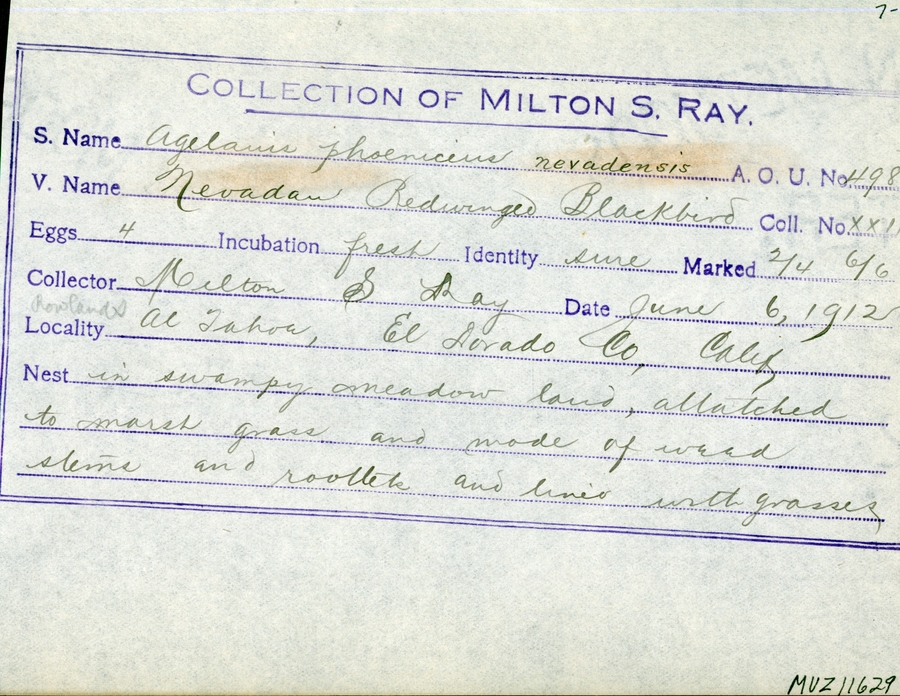 7-
COLLECTION OF MILTON S. RAY.
S. Name Agelaius phoeniceus nevadensis A. O. U. No. 498
V. Name Nevadan Redwinged Blackbird Coll. No. XXII
Eggs 4 Incubation fresh Identity sure Marked 2/4 6/6
Collector Milton S Ray Date June 6, 1912
Rowlands
Locality Al Tahoe, El Dorado Co, Calif,
Nest in swampy meadow land, attatched
to marsh grass and made of weed
stems and rootlets and lined with grasses
MVZ 11629